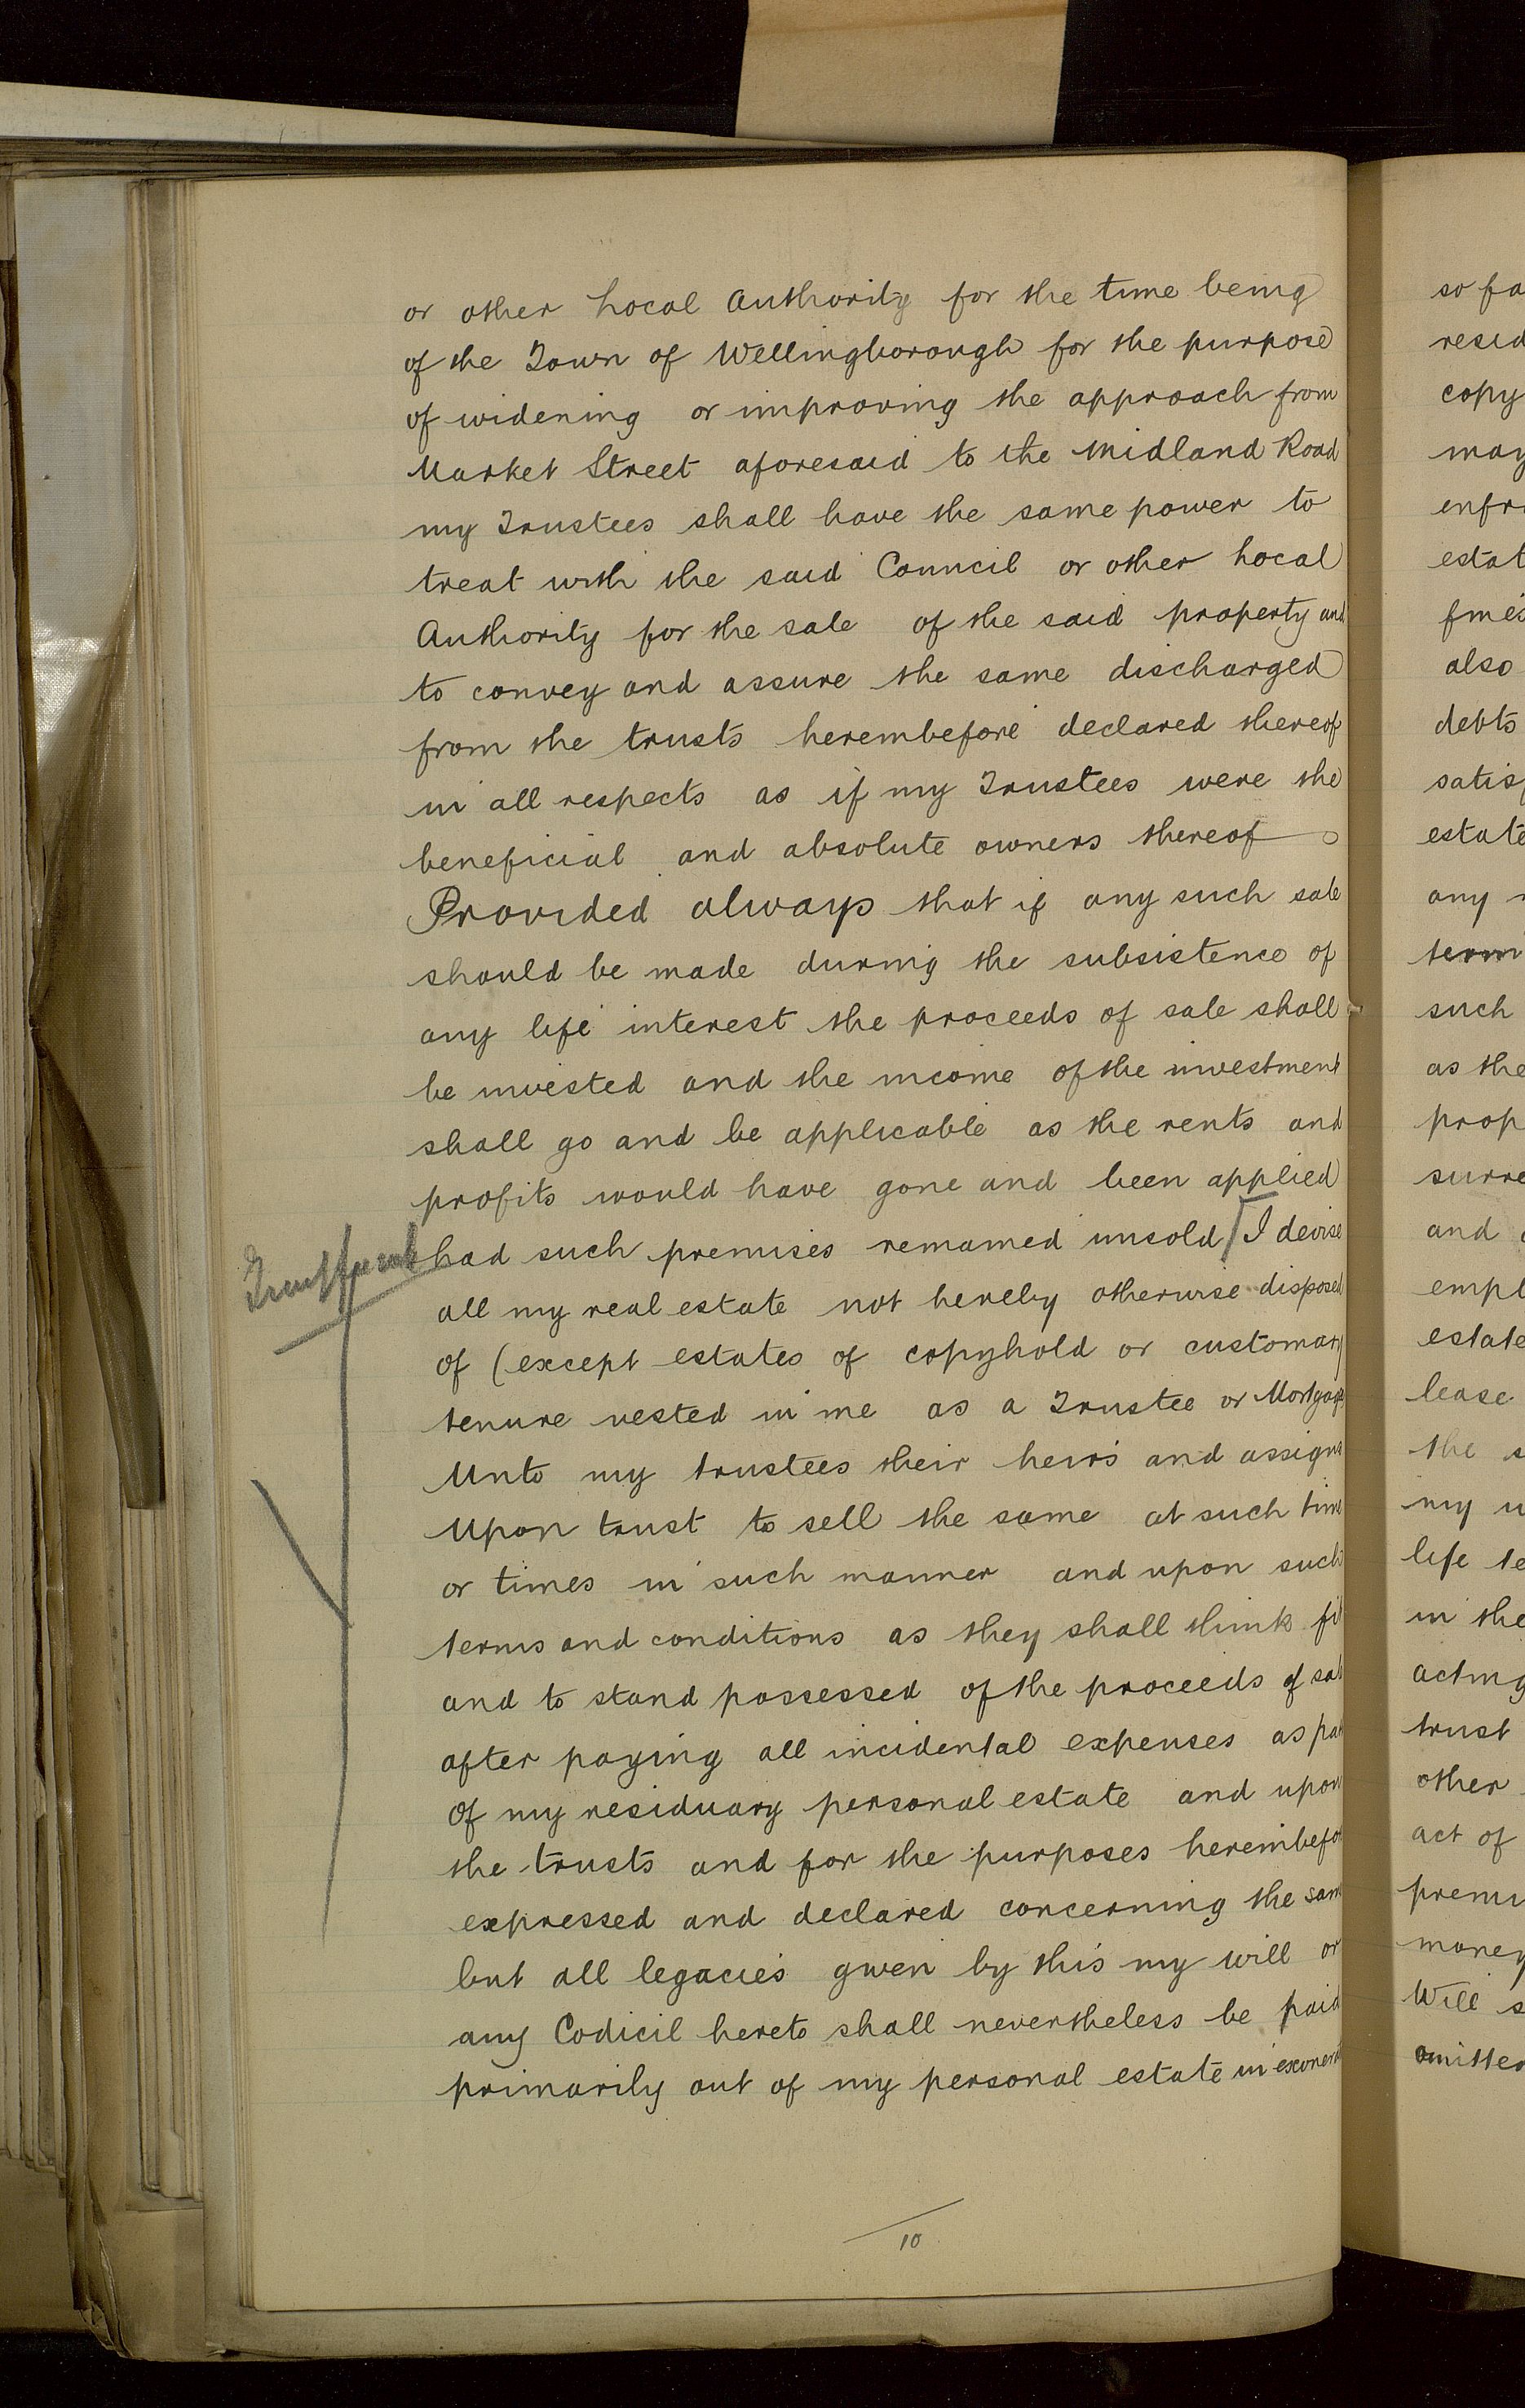 or other Local Authority for the time being
of the Town of Wellingborough for the purpose
of widening or improving the approach from
Market Street aforesaid to the Midland Road
my Trustees shall have the same power to
treat with the said Council or other Local
Authority for the sale of the said property and
to convey and assure the same discharged
from the trusts hereinbefore declared thereof
in all respects as if my Trustees were the
beneficial and absolute owners thereof
Provided always that if any such sale
should be made during the subsistence of
any life interest the proceeds of sale shall
be invested and the income of the investment
shall go and be applicable as the rents and
profits would have gone and been applied
had such premises remained unsold [I devise
all my real estate not hereby otherwise disposed
of (except estates of copyhold or customary
tenure vested in me as a Trustee or Mortgage
Unto my trustees their heirs and assigns
Upon trust to sell the same at such time
or times in such manner and upon such
terms and conditions as they shall think fit
and to stand possessed of the proceeds of sal
after paying all incidental expenses as par
of my residuary personal estate and upon
the trusts and for the purposes hereinbefo
expressed and declared concerning the sam
but all legacies given by this my will or
any Codicil hereto shall nevertheless be paid
primarily out of my personal estate in exonerat
10
so fa
resid
copy
may
enfr
estat
fines
also
debts
satisf
estate
any
term
such
as the
prop
surre
and
empl
estate
lease
the s
my
life te
in the
acting
trust
other
act of
premi
money
Will s
omitted